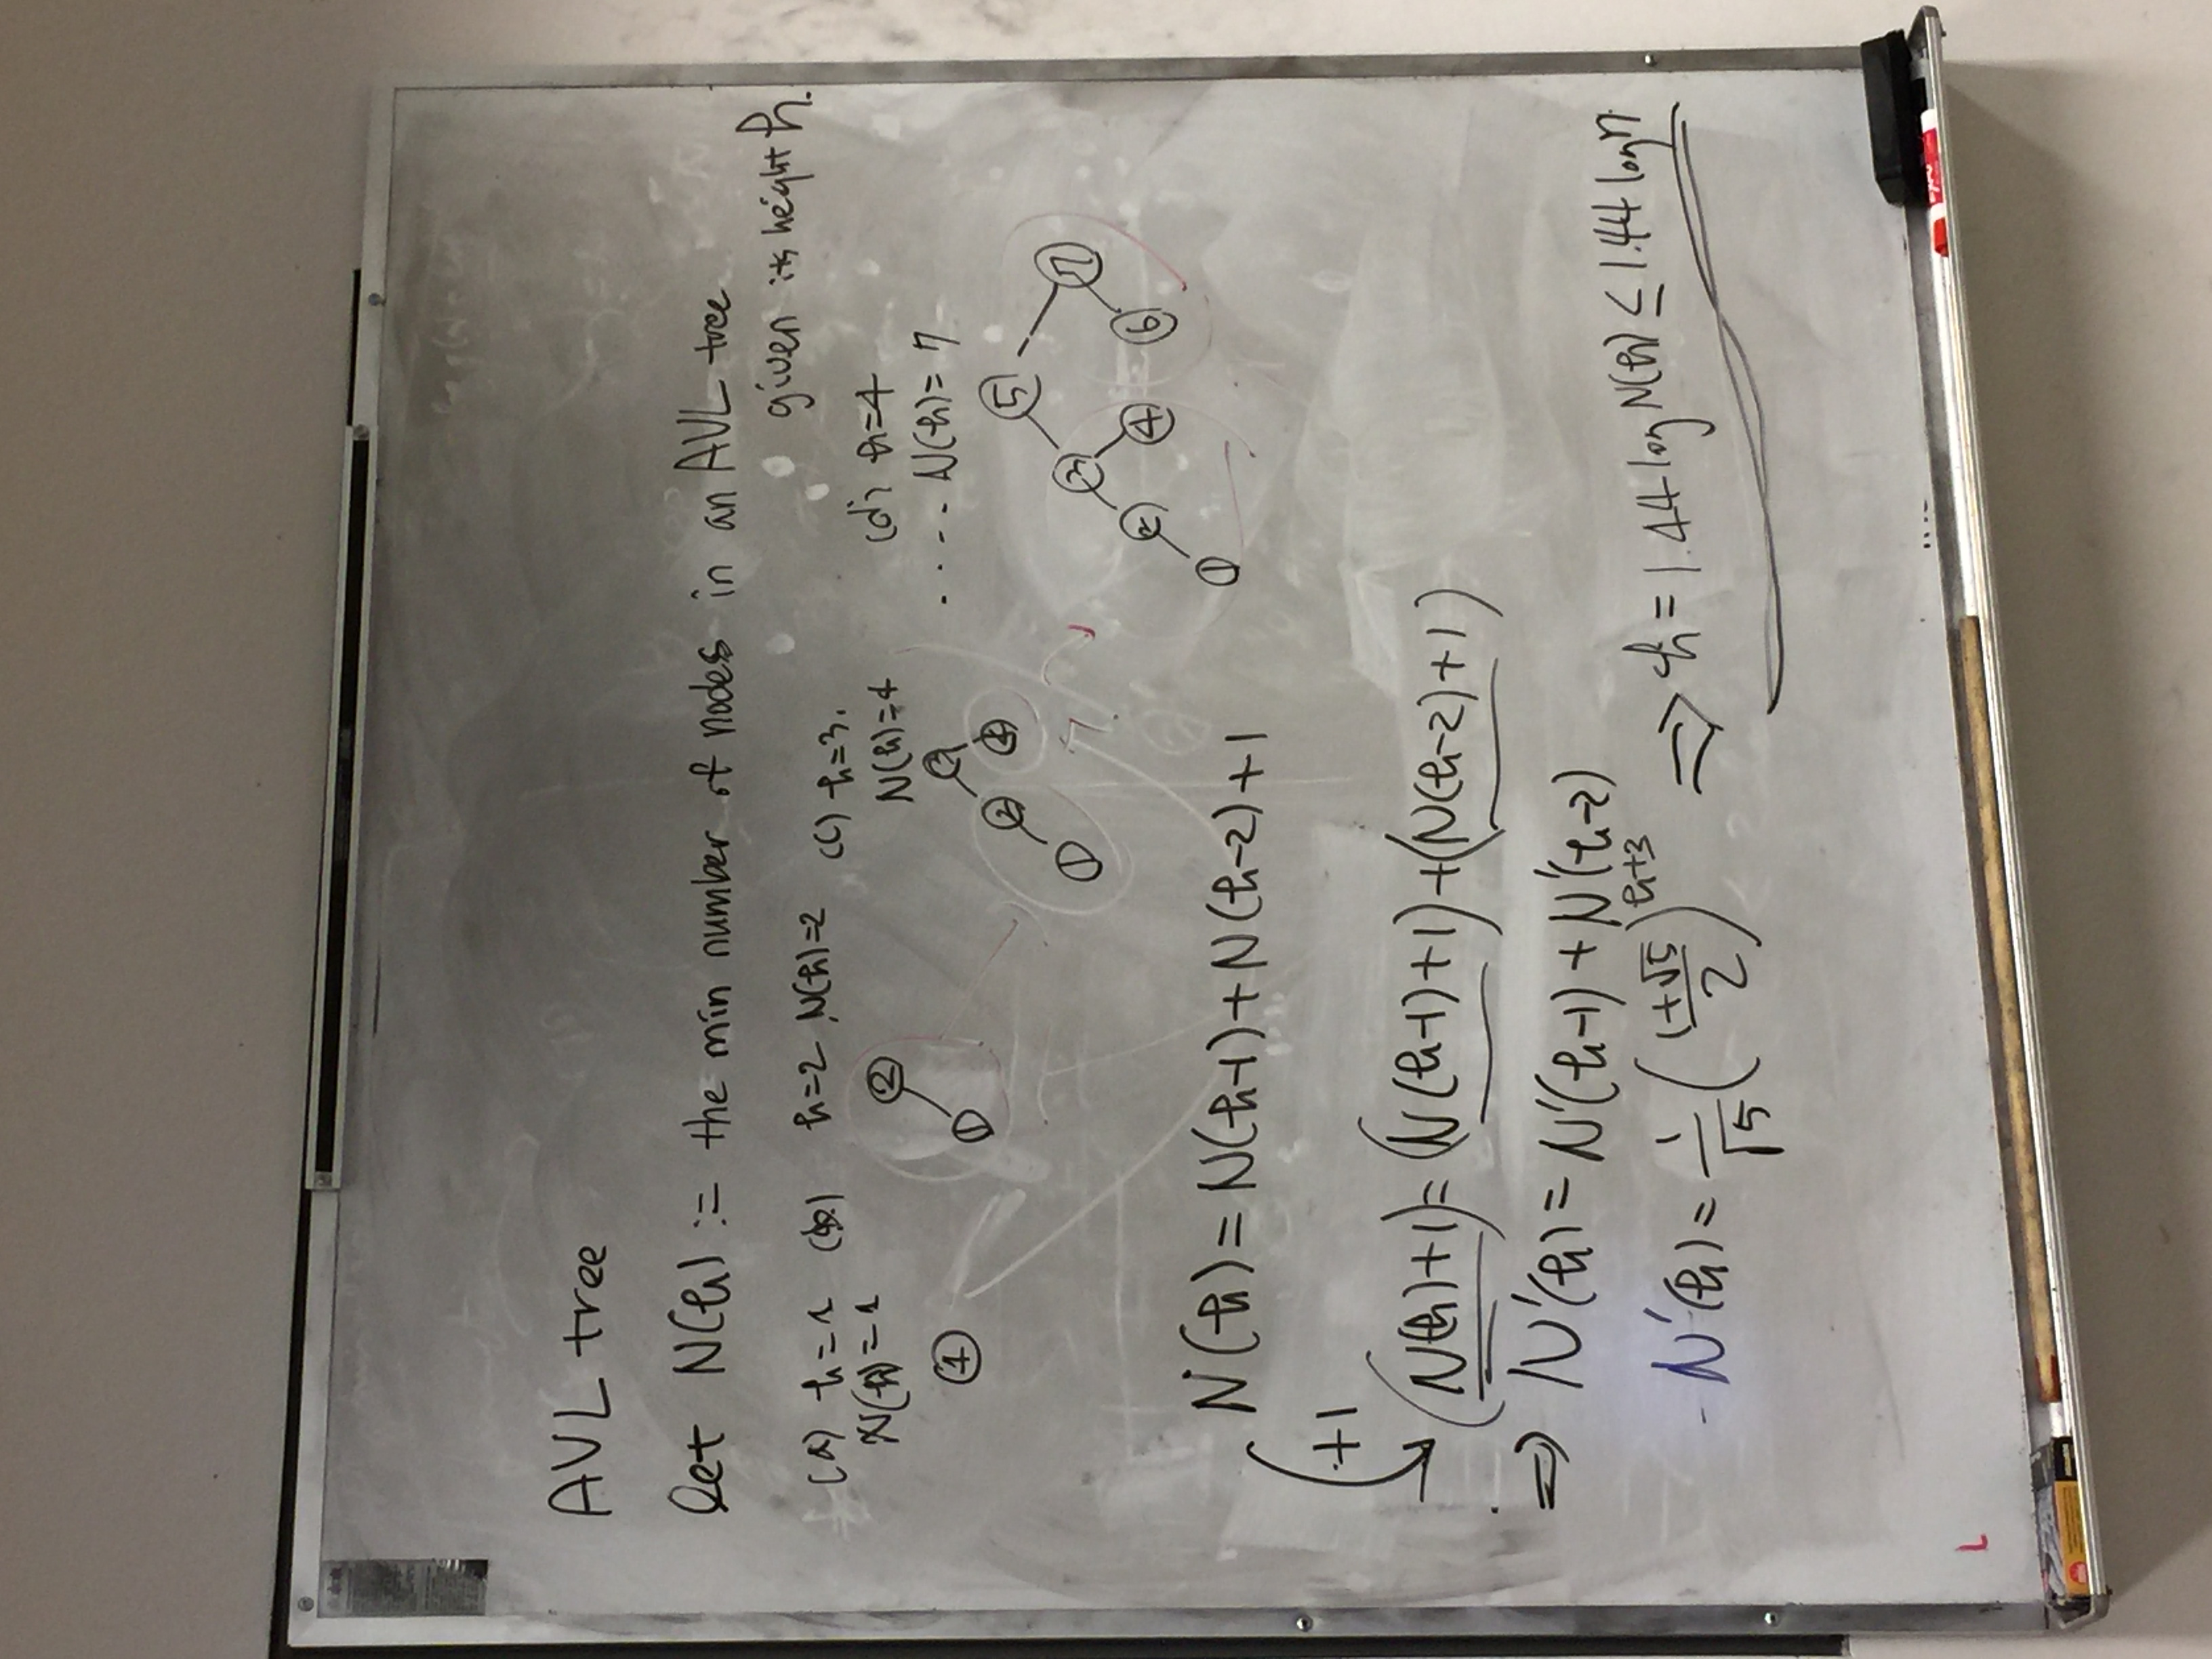 AVL tree
let N(h) := the min number of nodes in an AVL tree
given its height h.
(a) h=1
N(h)=1
1
(b) h=2, N(h)=2
2
1
(c) h=3.
N(h)=4
3
2 4
1
(d) h=4
.... N(h)=7
5
3 7
2 4 6
1
N(h)=N(h-1)+N(h-2)+1
+1
(N(h)+1)=(N(h-1)+1)+(N(h-2)+1)
⇒ N'(h)=N'(h-1)+N'(h-2)
N'(h)=1/√5((1+√5)/2)^(h+3) ⇒ h=1.44 log N(h) ≤ 1.44 log n
L